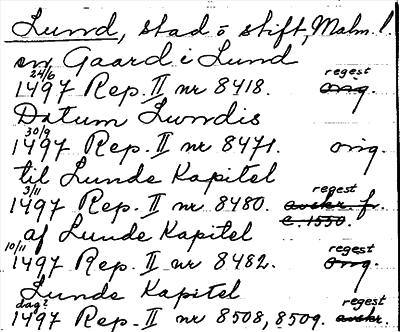 Lund, stad o stift, Malm. l.
en Gaard i Lund
24/6 regest
1497 Rep. II nr 8418. orig.
Datum Lundis
30/9
1497 Rep. II nr 8471. orig.
til Lunde Kapitel
3/11 regest
1497 Rep. II nr 8480. avskr. f.
af Lunde Kapitel c. 1550.
10/11 regest
1497 Rep. II nr 8482. orig.
Lunde Kapitel
dag? regest
1497 Rep. II nr 8508, 8509. avskr.